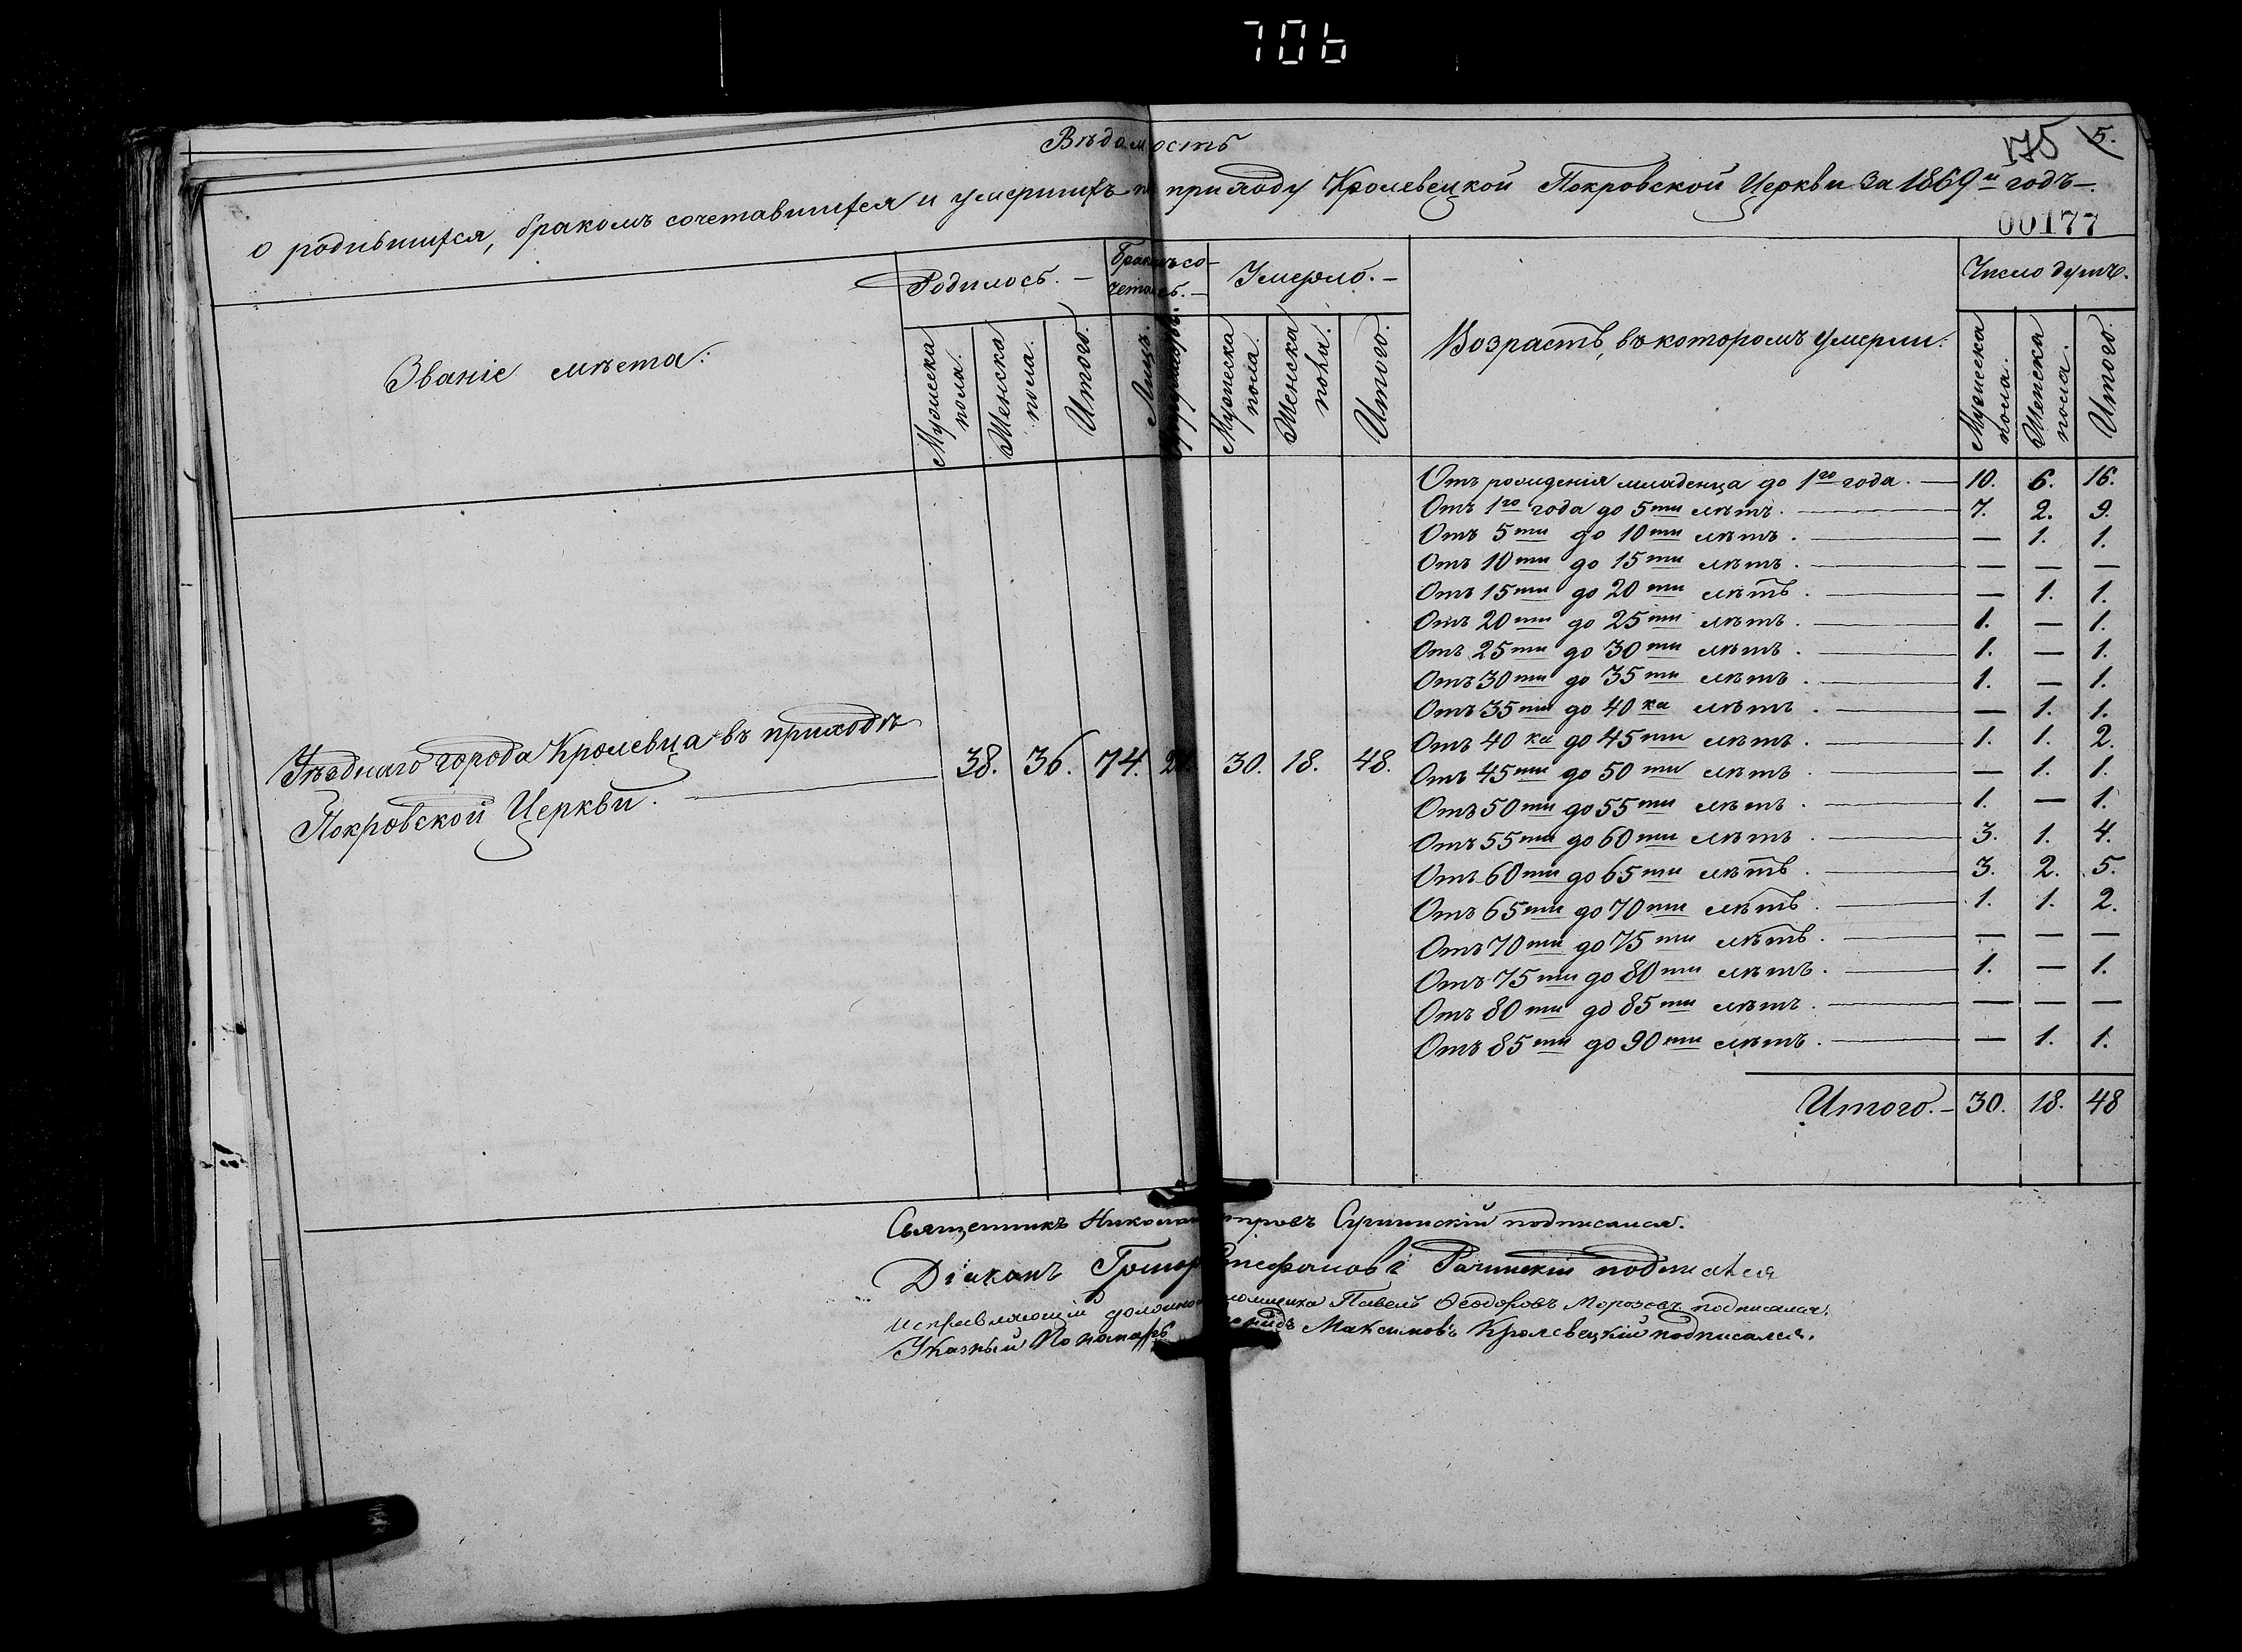 706
Вѣдомость
175 5.
о родившихся, бракомъ сочетавшихся и умершихъ по приходу Кролевецкой Покровской Церкви за 1869й годъ.
00177
Званіе мѣста:
Родилось.
Мужеска пола.
Женска пола.
Итого.
Бракомъ сочеталось.
Лицъ.
Умерло.
Мужеска пола.
Женска пола.
Итого.
Возрастъ, въ которомъ умерли:
Число душъ.
Мужеска пола.
Женска пола.
Итого.
Уѣзднаго города Кролевца въ приходѣ
Покровской Церкви. 38. 36. 74. 30. 18. 48.
Отъ рожденія младенца до 1го года. — 10. 6. 16.
Отъ 1го года до 5ти лѣтъ. — 7. 2. 9.
Отъ 5ти до 10ти лѣтъ. — — 1. 1.
Отъ 10ти до 15ти лѣтъ. — — — —
Отъ 15ти до 20ти лѣтъ. — — 1. 1.
Отъ 20ти до 25ти лѣтъ. — 1. — 1.
Отъ 25ти до 30ти лѣтъ. — 1. — 1.
Отъ 30ти до 35ти лѣтъ. — 1. — 1.
Отъ 35ти до 40ка лѣтъ. — — 1. 1.
Отъ 40ка до 45ти лѣтъ. — 1. 1. 2.
Отъ 45ти до 50ти лѣтъ. — — 1. 1.
Отъ 50ти до 55ти лѣтъ. — 1. — 1.
Отъ 55ти до 60ти лѣтъ. — 3. 1. 4.
Отъ 60ти до 65ти лѣтъ. — 3. 2. 5.
Отъ 65ти до 70ти лѣтъ. — 1. 1. 2.
Отъ 70ти до 75ти лѣтъ. — — — —
Отъ 75ти до 80ти лѣтъ. — 1. — 1.
Отъ 80ти до 85ти лѣтъ. — — — —
Отъ 85ти до 90ти лѣтъ. — — 1. 1.
Итого. — 30. 18. 48
Священникъ Николай подписался.
Діаконъ подписался
Исправляющій Павелъ Ѳеодоровъ Морозовъ подписался.
Указный Пономарь Максимовъ Кролевецкій подписался.